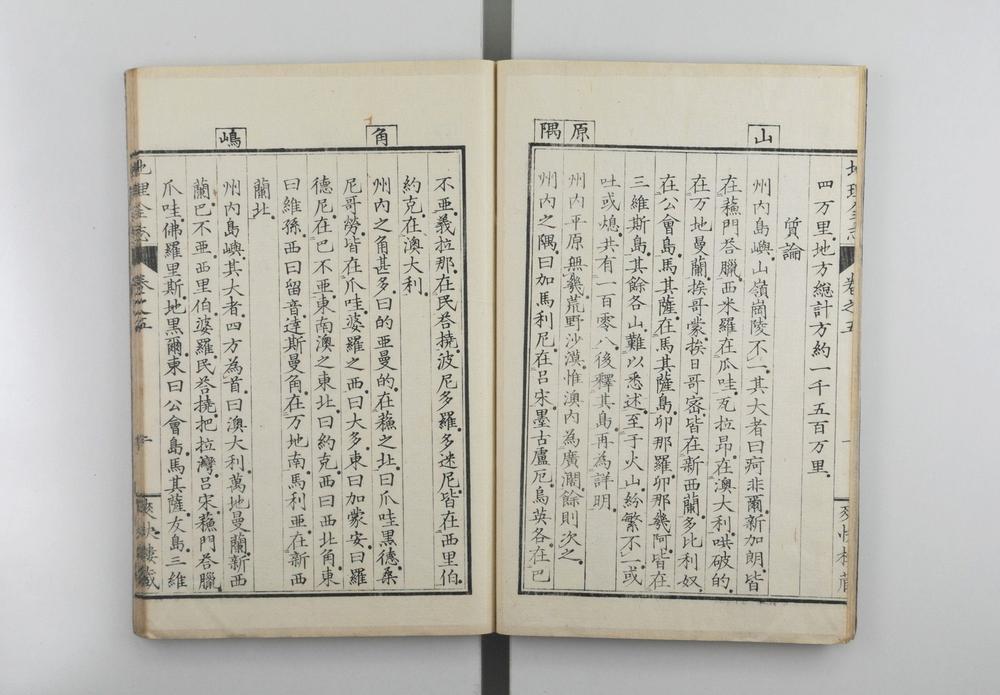 山
原
隅
四万里.地方總計方約一千五百万里.
質論
州內島嶼.山嶺崗陵不一.其大者曰疴非爾.新加朗.皆
在蘓門荅臘.西米羅在瓜哇.瓦拉昂.在澳大利.哄破的.
在万地曼蘭.挨哥蒙.挨日哥密.皆在新西蘭.多比利奴.
在公會島.馬其薩.在馬其薩島.卯那羅.卯那幾阿.皆在
三維斯島.其餘各山.難以悉述.至于火山.紛繁不一.或
吐或熄.共有一百零八.後釋其島.再為詳明.
州內平原無幾.荒野沙漠.惟澳內為廣濶.餘則次之.
州內之隅.曰加馬利尼.在呂宋.墨古盧厄.烏英各.在巴
地理全志 卷之五
角
嶋
不亞.義拉那.在民荅撓.波尼.多羅.多迷尼.皆在西里伯.
約克.在澳大利.
州內之角甚多.曰的亞曼的.在蘓之北.曰爪哇黑德.桑
尼哥勞.皆在爪哇.婆羅之西曰大多.東曰加蒙安.曰羅
德尼.在巴不亞東南.澳之東北曰約克.西曰西北角.東
曰維孫.西曰留音.達斯曼角.在万地.南馬利亞.在新西
蘭北.
州內島嶼.其大者.四方為首.曰澳大利.萬地曼蘭.新西
蘭.巴不亞.西里伯.婆羅.民荅撓.把拉灣.呂宋.蘓門荅臘.
爪哇.佛羅里斯.地黑爾.東曰公會島.馬其薩.友島.三維
地理全志 卷之五